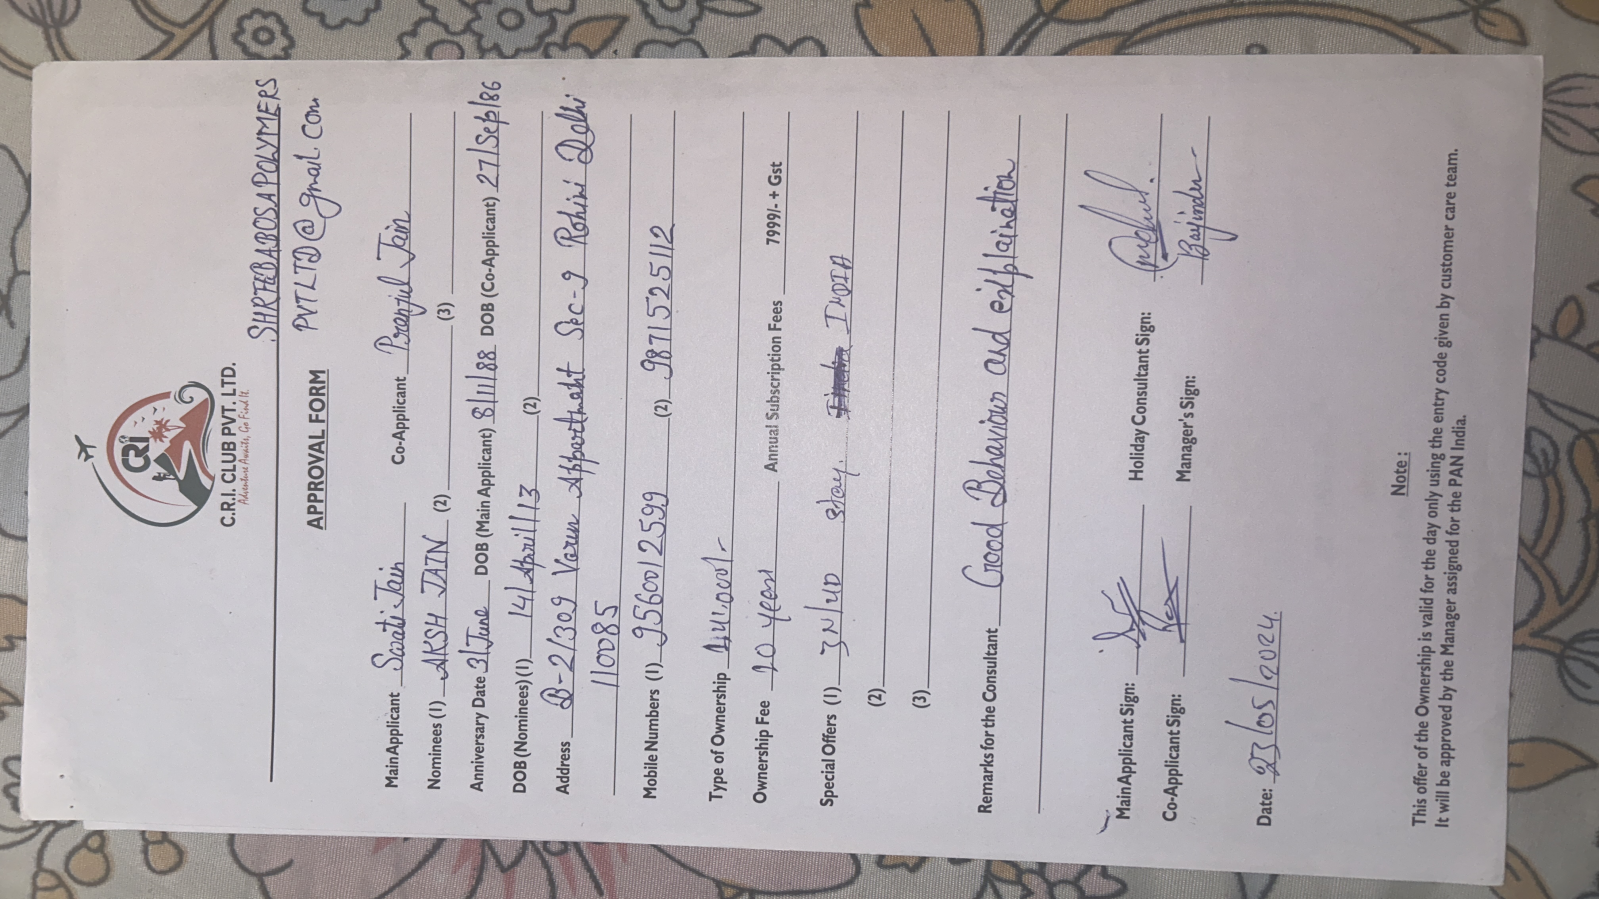 CRI
C.R.I. CLUB PVT. LTD.
Adventure Awaits, Go Find It.
SHREEBABOSAPOLYMERS
APPROVAL FORM PVTLTD@gmail.com
Main Applicant Swati Jain Co-Applicant Pranjul Jain
Nominees (1) AKSH JAIN (2) (3)
Anniversary Date 3/June DOB (Main Applicant) 8/11/88 DOB (Co-Applicant) 27/Sep/86
DOB (Nominees) (1) 14/April/13 (2)
Address B-2/309 Varun Appartment Sec-9 Rohini Delhi
110085
Mobile Numbers (1) 9560012599 (2) 9871525112
Type of Ownership
Ownership Fee years Annual Subscription Fees 7999/- + Gst
Special Offers (1) 3N/4D stay. INDIA
(2)
(3)
Remarks for the Consultant Good Behaviour and explaination
Main Applicant Sign: Holiday Consultant Sign:
Co-Applicant Sign: Manager's Sign:
Date: 23/05/2024
Note :
This offer of the Ownership is valid for the day only using the entry code given by customer care team.
It will be approved by the Manager assigned for the PAN India.